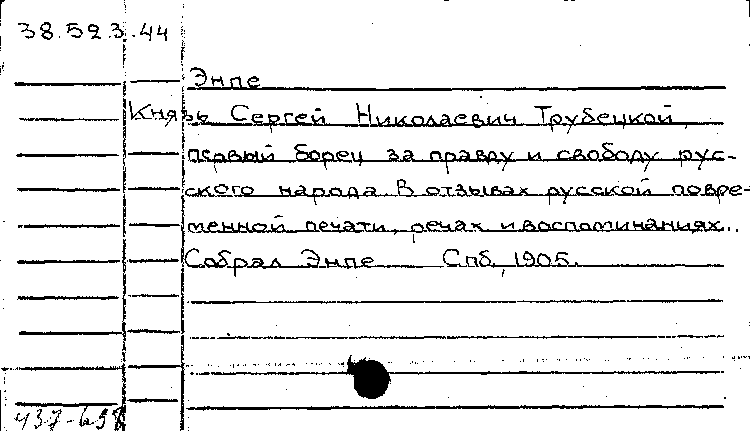 38.52.3.44
Энпе
Князь Сергей Николаевич Трубецкой,
первый борец за правду и свободу рус-
ского народа. В отзывах русской повре-
менной печати, речах и воспоминаниях..
Собрал Энпе Спб, 1905.
437-698